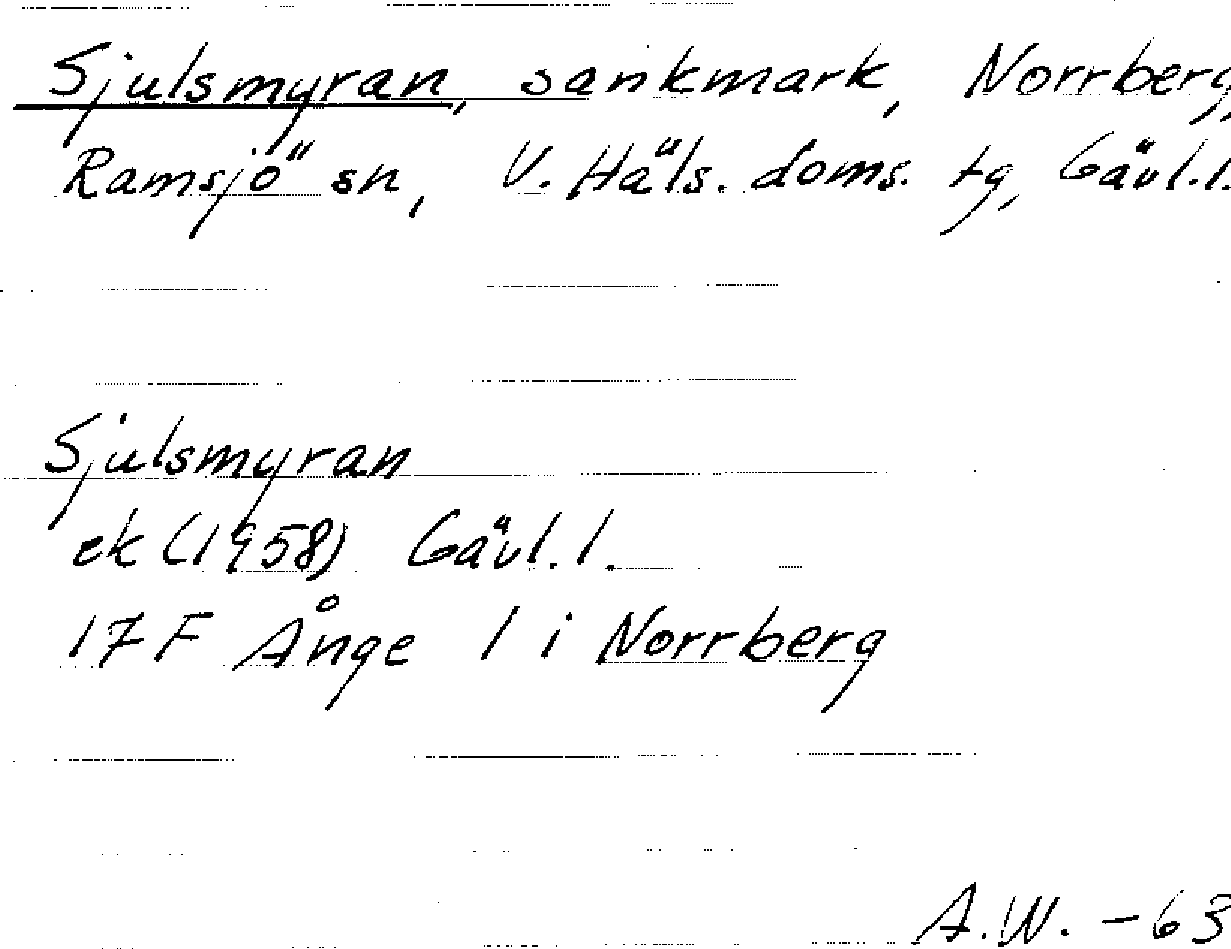 Sjulsmyran, sankmark, Norrberg,
Ramsjö sn, V. Häls. doms. tg, Gävl.l.
Sjulsmyran
ek (1958) Gävl.l.
17F Ånge 1 i Norrberg
A.W. -63